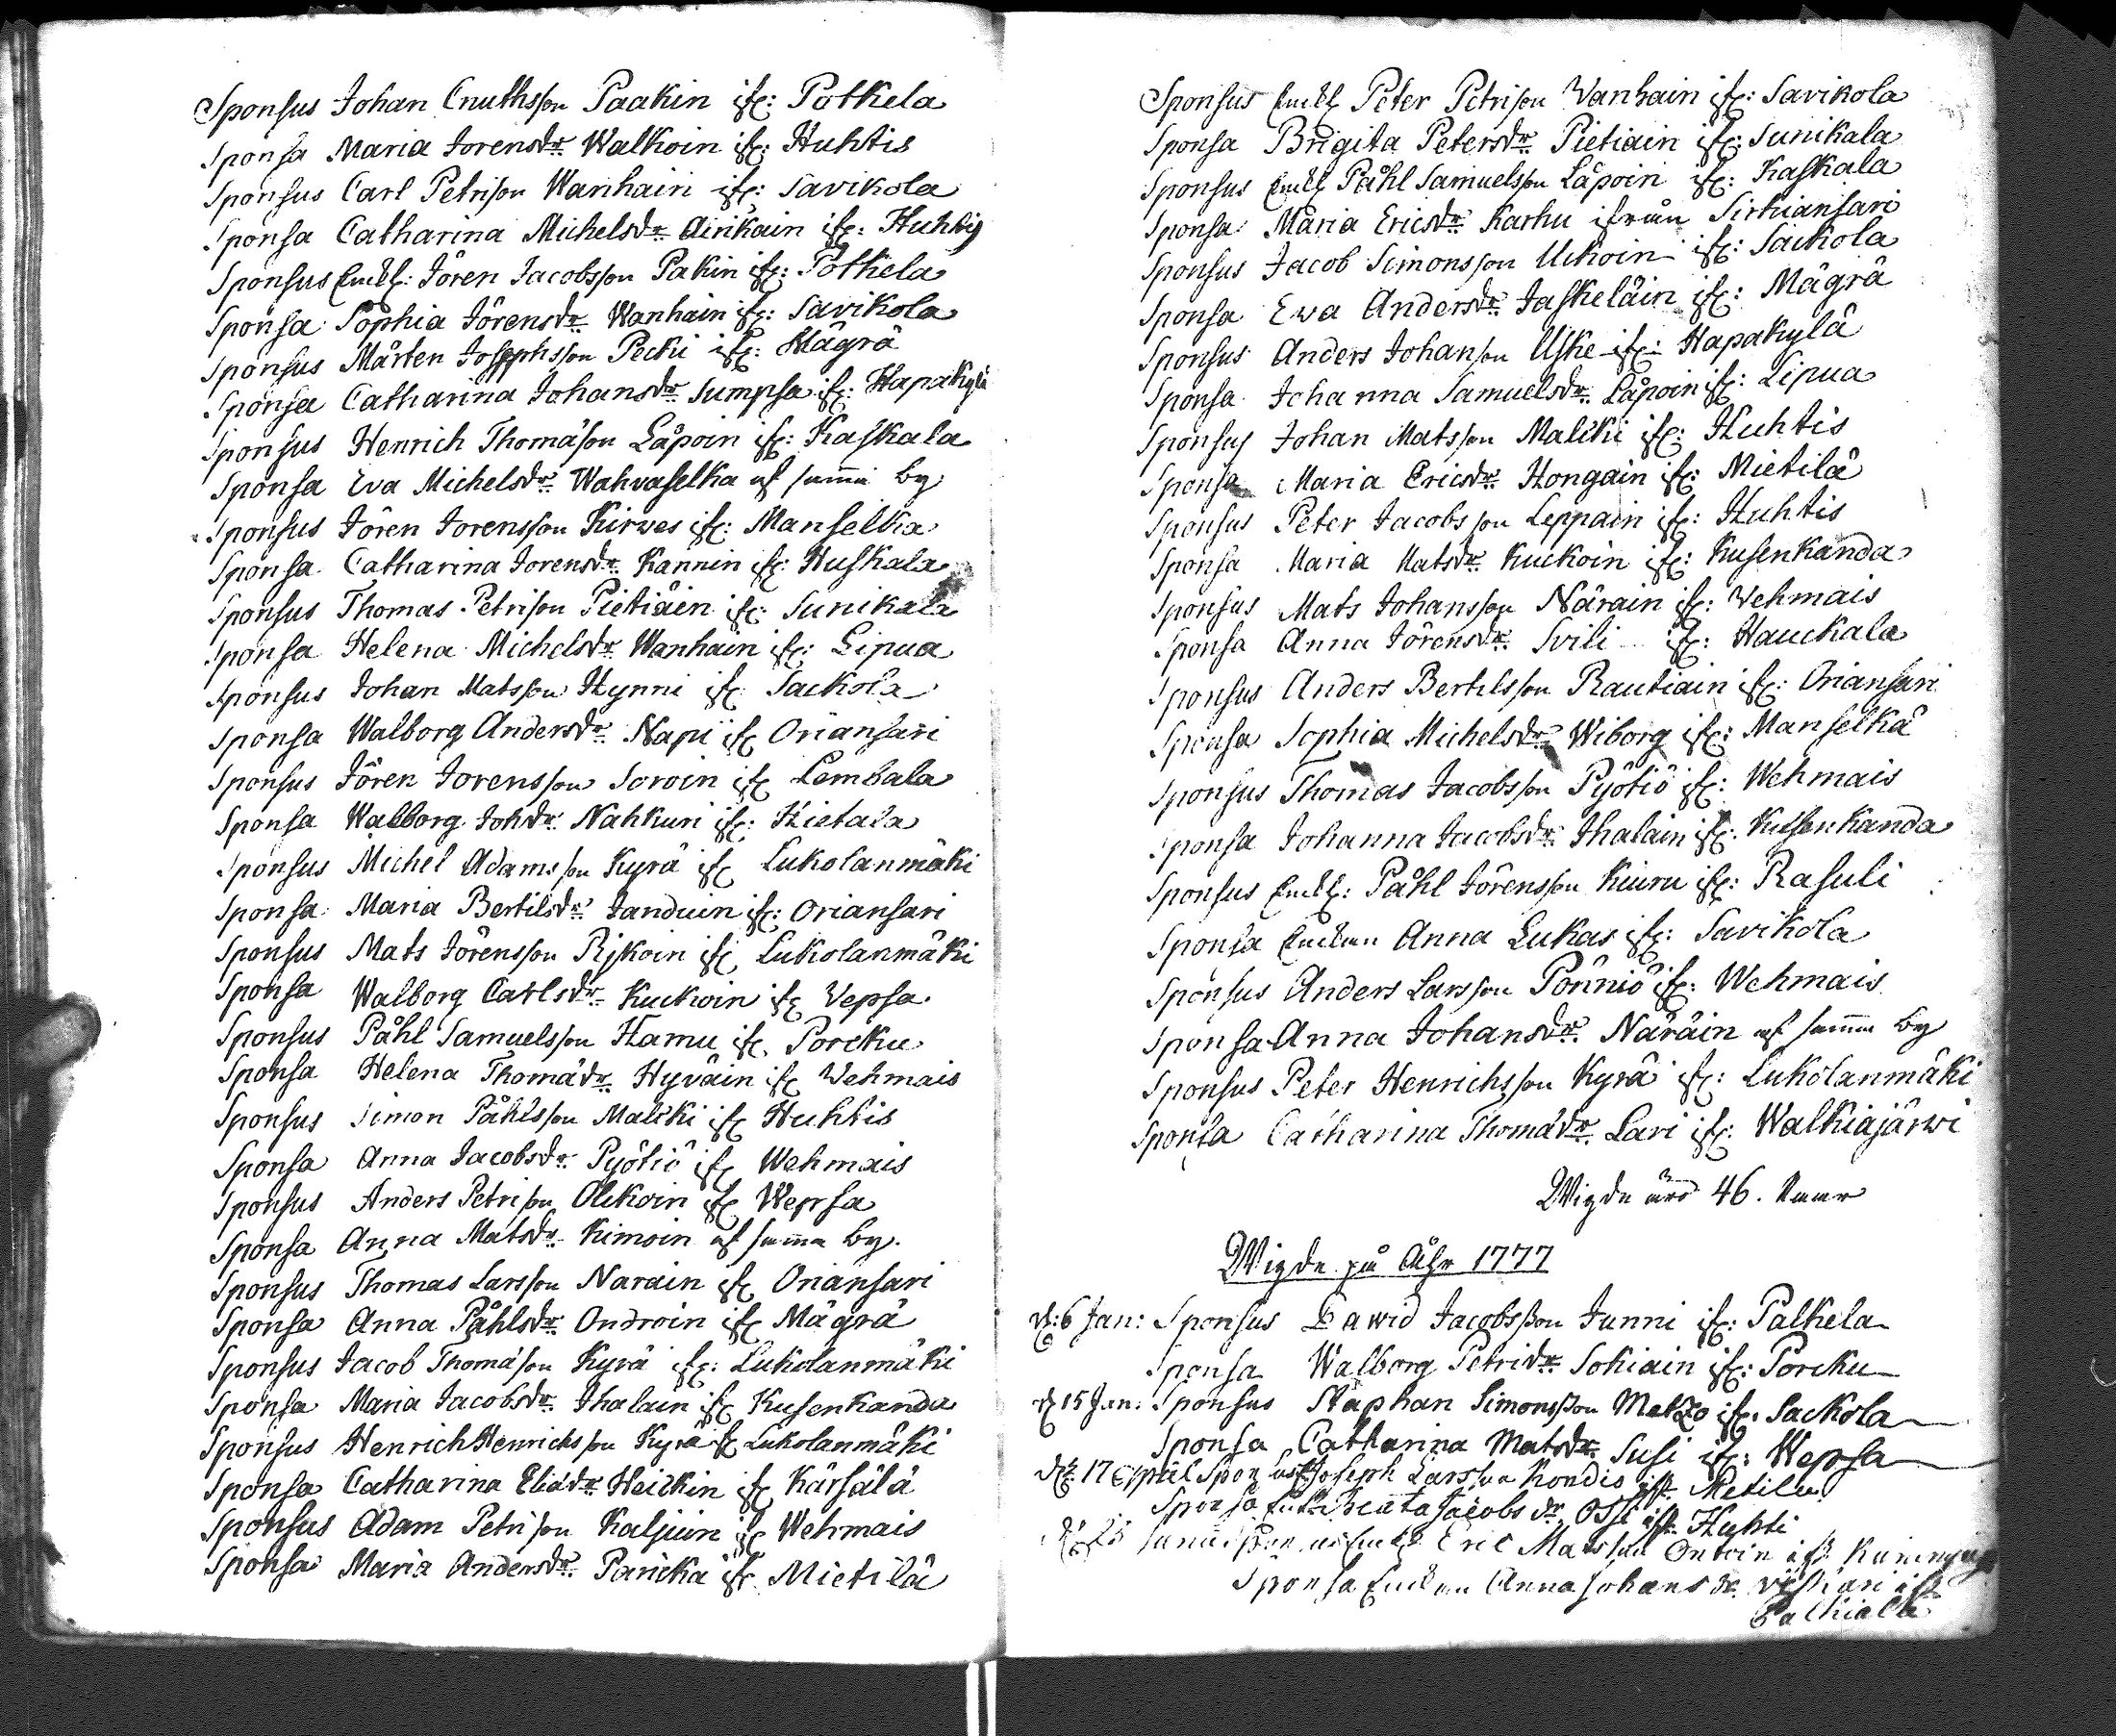 Sponsus Johan Cnuthsson Paakin ifr: Potkela
Sponsa Maria Jorensdr Walkoin ifr: Huhtis
Sponsus Carl Petrison Wanhain ifr: Savikola
Sponsa Catharina Michelsdr Airikain ifr: Huhtis
Sponsus Enkl: Jören Jacobsson Pakin ifr: Potkela
Sponsa Sophia Jörensdr Wanhain ifr: Savikola
Sponsus Mårten Josephsson Pecki ifr: Mägrä
Sponsa Catharina Johansdr Sumpsa ifr: Hapakylä
Sponsus Henrich Thomäson Låpoin ifr: Kaskala
Sponsa Eva Michelsdr Wahvaselka af samma by
Sponsus Jören Jorensson Kirves ifr: Manselka
Sponsa Catharina Jorensdr Kannin ifr: Huskala
Sponsus Thomas Petrison Pietiäin ifr: Sunikala
Sponsa Helena Michelsdr Wanhain ifr: Lipua
Sponsus Johan Matsson Hynni ifr Sackola
Sponsa Walborg Andersdr Napi ifr Oriansari
Sponsus Jören Jorensson Soroin ifr Lembala
Sponsa Walborg Johdr Nahkuri ifr: Hietala
Sponsus Michel Adamsson Kyrä ifr Lukolanmäki
Sponsa Maria Bertilsdr Janduin ifr: Oriansari
Sponsus Mats Jörensson Rijkoin ifr Lukolanmäki
Sponsa Walborg Carlsdr Kuckoin ifr Vepsa
Sponsus Påhl Samuelsson Hamu ifr. Porcku
Sponsa Helena Thomädr Hyväin ifr Vehmais
Sponsus Simon Påhlsson Malcki ifr Huhtis
Sponsa Anna Jacobsdr Pyötiö ifr Wehmais
Sponsus Anders Petrison Olikoin ifr Wepsa
Sponsa Anna Matsdr Kimoin af samma by.
Sponsus Thomas Larsson Narain ifr Oriansari
Sponsa Anna Påhlsdr Ondroin ifr Mägrä
Sponsus Jacob Thomäson Kyrä ifr: Lukolanmäki
Sponsa Maria Jacobsdr Ihalain ifr Kusenkanda
Sponsus Henrich Henrichsson Kyrä ifr Lukolanmäki
Sponsa Catharina Eliädr Heickin ifr Kärsälä
Sponsus Adam Petrison Kaljuin ifr Wehmais
Sponsa Maria Andersdr Paricka ifr Mietilä
Sponsus Enkl Peter Petrison Wanhain ifr: Savikola
Sponsa Brigita Petersdr Pietiain ifr: Sunikala
Sponsus Enkl Påhl Samuelsson Låpoin ifr: Kaskala
Sponsa Maria Ericsdr Karhu ifrån Sirkiansari
Sponsus Jacob Simonsson Uckoin ifr: Sackola
Sponsa Eva Andersdr Jaskeläin ifr: Mägrä
Sponsus Anders Johanson Uske ifr: Hapakylä
Sponsa Johanna Samuelsdr Låpoin ifr: Lipua
Sponsus Johan Matsson Malcki ifr: Huhtis
Sponsa Maria Ericsdr Hongain ifr: Mietilä
Sponsus Peter Jacobsson Leppain ifr: Huhtis
Sponsa Maria Matsdr Kuckoin ifr: Kusenkanda
Sponsus Mats Johansson Närain ifr: Vehmais
Sponsa Anna Jörensdr Svili ifr: Hauckala
Sponsus Anders Bertilsson Rautiain ifr: Oriansari
Sponsa Sophia Michelsdr Wiborg ifr: Manselkä
Sponsus Thomas Jacobsson Pyötiö ifr: Wehmais
Sponsa Johanna Jacobsdr Ihalain ifr: Kusenkanda
Sponsus Enkl: Påhl Jörensson Kiuru ifr: Rasuli
Sponsa Enckan Anna Lukas ifr: Savikola
Sponsus Anders Larsson Pönniö ifr: Wehmais
Sponsa Anna Johansdr Näräin af samma by
Sponsus Peter Henrichsson Kyrä ifr: Lukolanmäki
Sponsa Catharina Thomädr Lari ifr: Walkiajärwi
Wigde äro 46. Paar
Wigde på Åhr 1777
d: 6 Jan: Sponsus Dawid Jacobsson Junni ifr: Palkela
Sponsa Walborg Petridr Sokiain ifr: Porcku
d 15 Jan: Sponsus Staphan Simonsson Metzo ifr: Sackola
Sponsa Catharina Matsdr Susi ifr: Wepsa
d: 17 April Sponsus Joseph Larsson Kondis ifr Metila
Sponsa Enk: Beata Jacobsdr Ossi ifr Huhti
d 25 Sponsus Enkl: Eric Matsson Ontoin ifr
Sponsa Enckan Anna Johansdr ifr
Palkiala